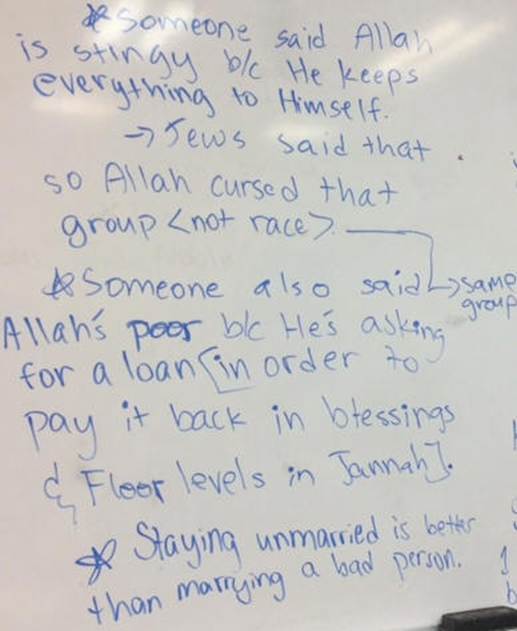 * Someone said Allah
is stingy b/c He keeps
everything to Himself.
→ Jews said that
so Allah cursed that
group <not race>.
* Someone also said → same
group
Allah's poor b/c He's asking
for a loan [in order to
pay it back in blessings
& Floor levels in Jannah].
* Staying unmarried is better
than marrying a bad person.